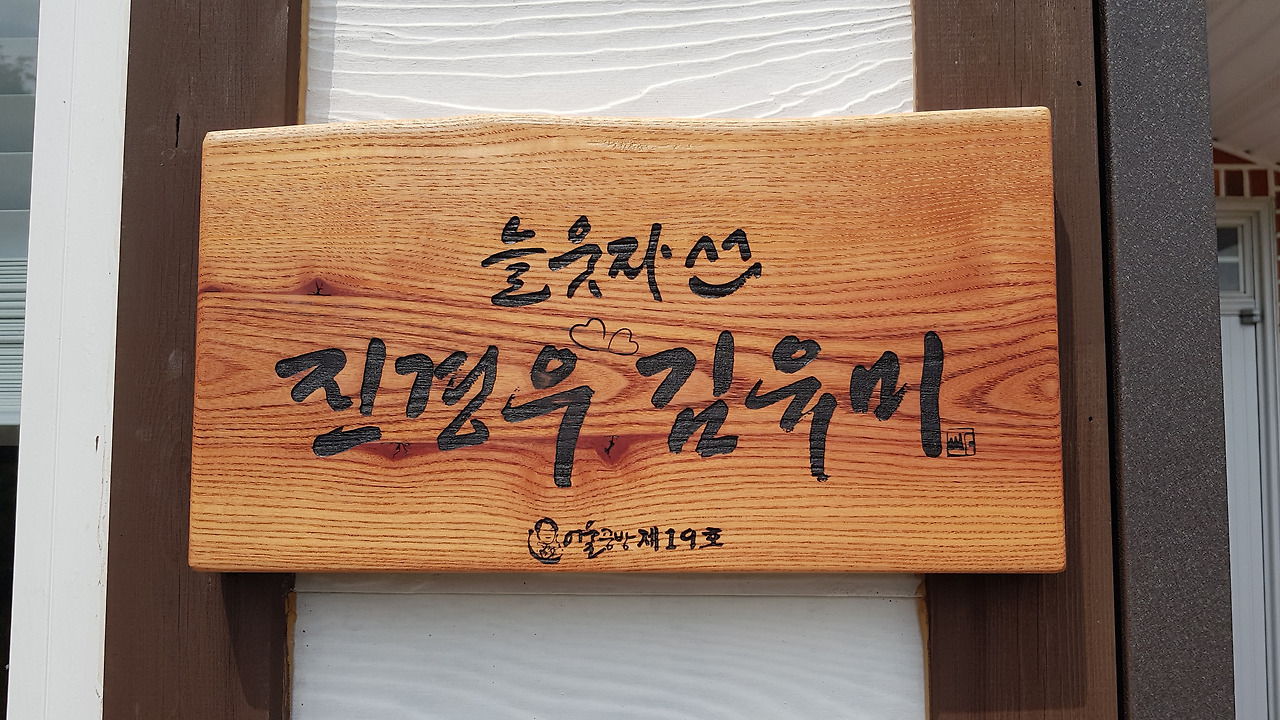 늘웃자 ^^
진경우 김유미
어울공방 제19호